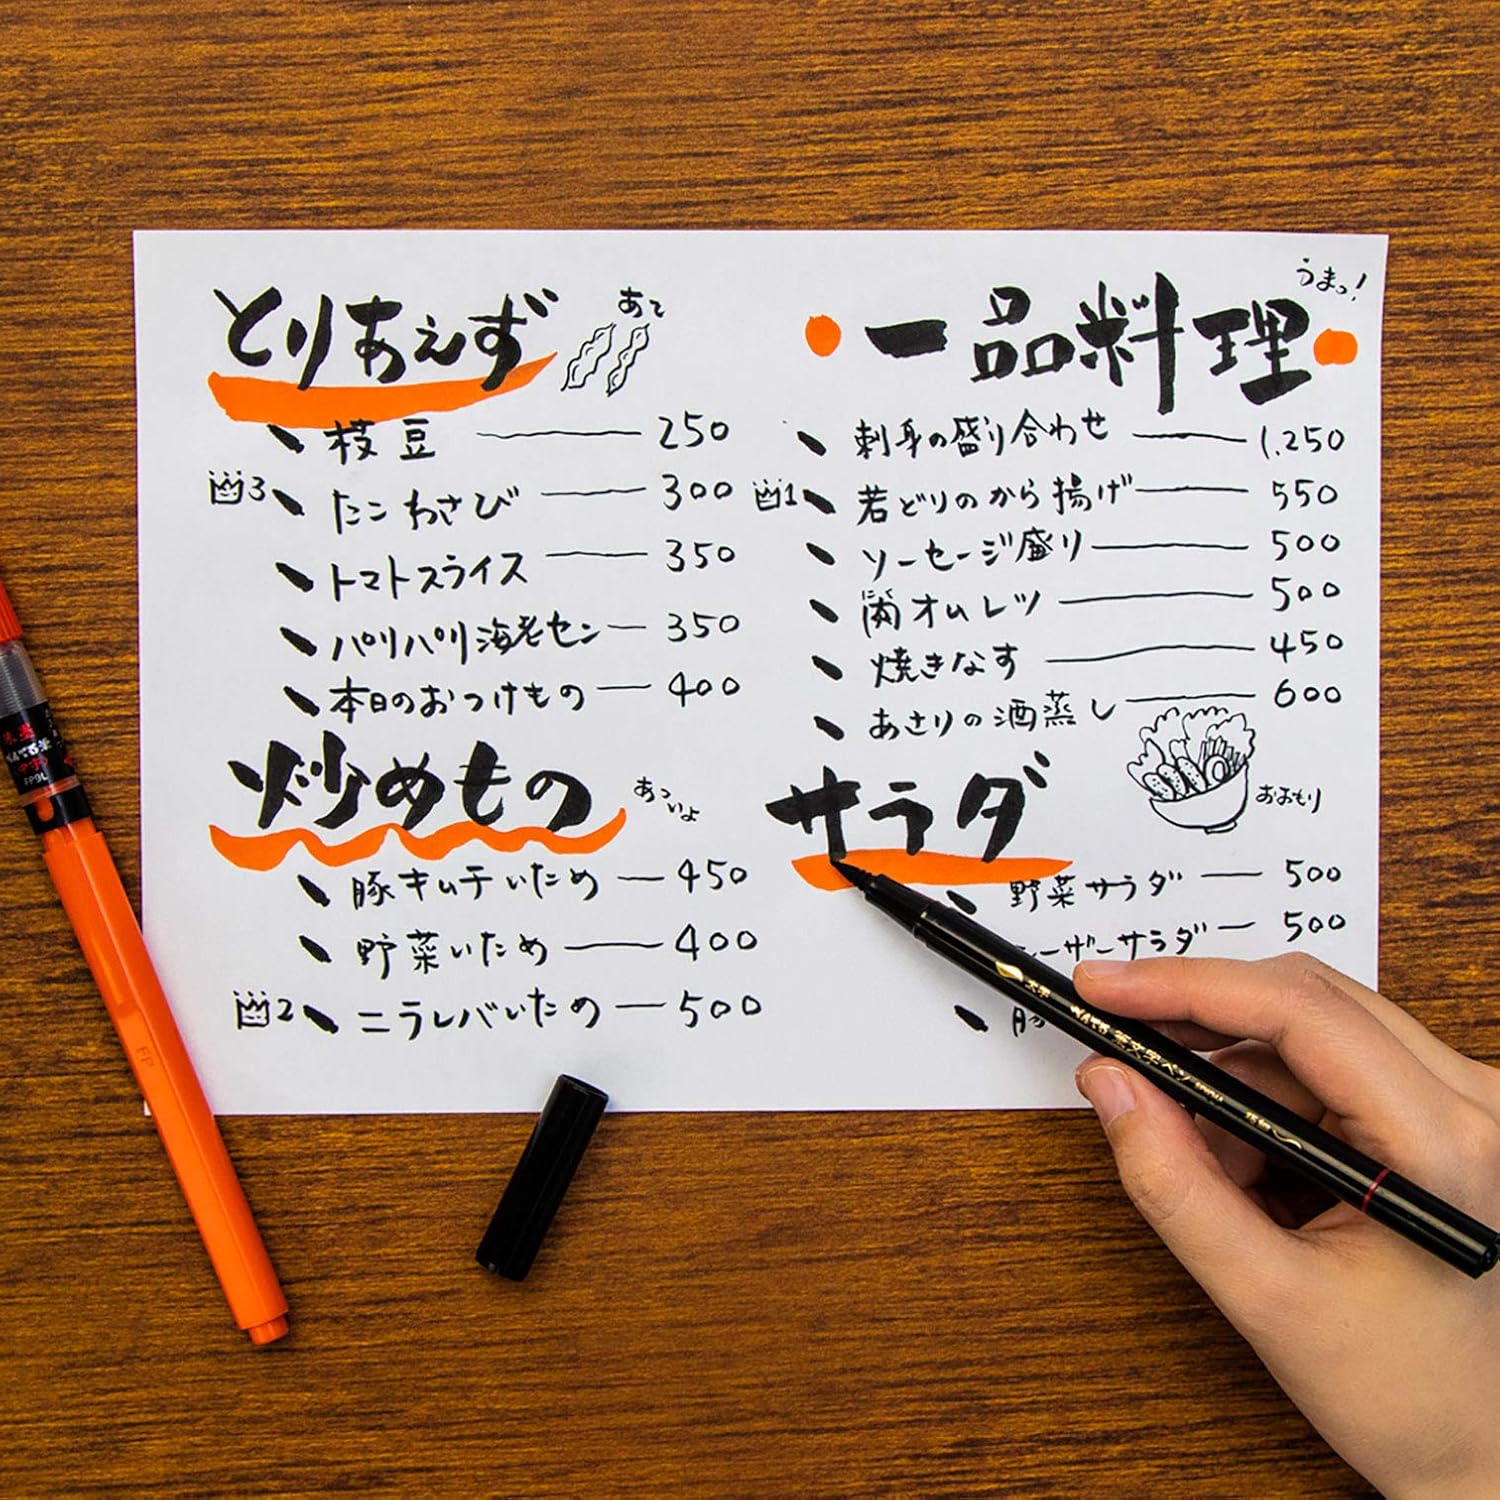 とりあえず
あて
枝豆 250
3 たこわさび 300
トマトスライス 350
パリパリ海老セン 350
本日のおつけもの 400
炒めもの
あついよ
豚キムチいため 450
野菜いため 400
2 ニラレバいため 500
一品料理
うまっ!
刺身の盛り合わせ 1,250
1 若どりのから揚げ 550
ソーセージ盛り 500
にく
肉オムレツ 500
焼きなす 450
あさりの酒蒸し 600
サラダ
おおもり
野菜サラダ 500
ーザーサラダ 500
FP